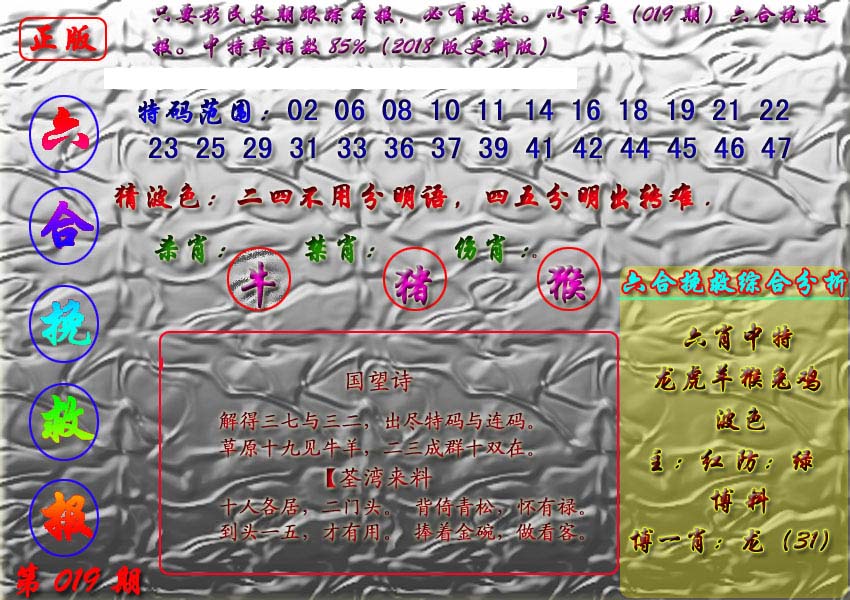 正版
只要彩民长期跟踪本报，必有收获。以下是（019期）六合挽救
报。中特率指数85%（2018版更新版）
特码范围：02 06 08 10 11 14 16 18 19 21 22
23 25 29 31 33 36 37 39 41 42 44 45 46 47
猜波色：二四不用分明语，四五分明出转难.
杀肖：牛 禁肖：猪 伤肖：。猴
六
合
挽
救
报
第019期
国望诗
解得三七与三二，出尽特码与连码。
草原十九见牛羊，二三成群十双在。
【荃湾来料
十人各居，二门头。 背倚青松，怀有禄。
到头一五，才有用。 捧着金碗，做看客。
六合挽救综合分析
六肖中特
龙虎羊猴兔鸡
波色
主：红防：绿
博料
博一肖：龙（31）